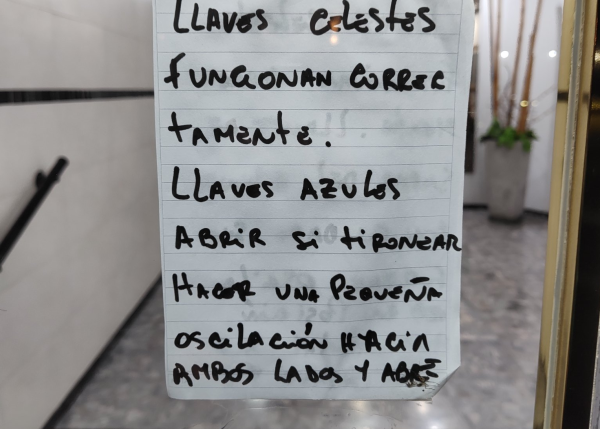 LLAVES CELESTES
FUNCIONAN CORREC
TAMENTE.
LLAVES AZULES
ABRIR SI TIRONEAR
HACER UNA PEQUEÑA
OSCILACIÓN HACIA
AMBOS LADOS Y ABRE